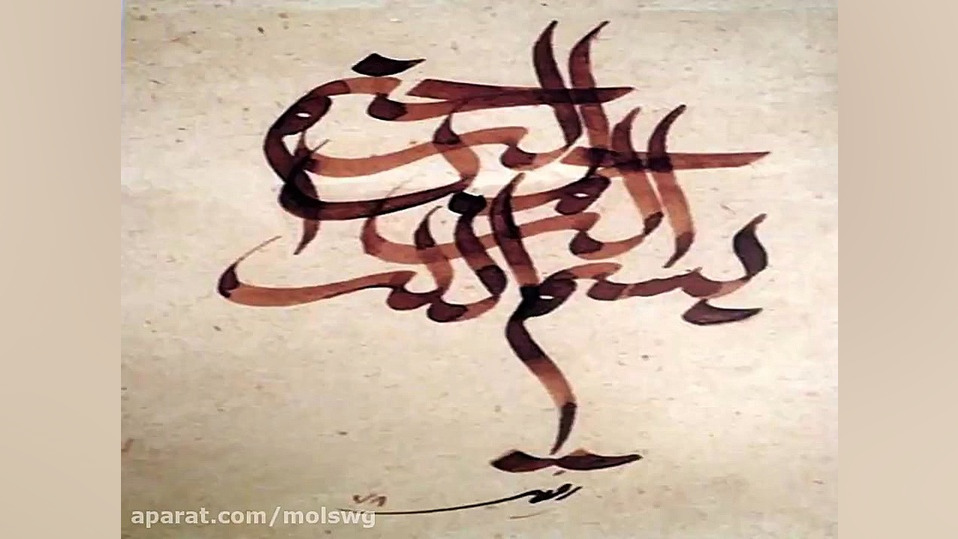 بسم الله الرحمن الرحیم
aparat.com/molswg